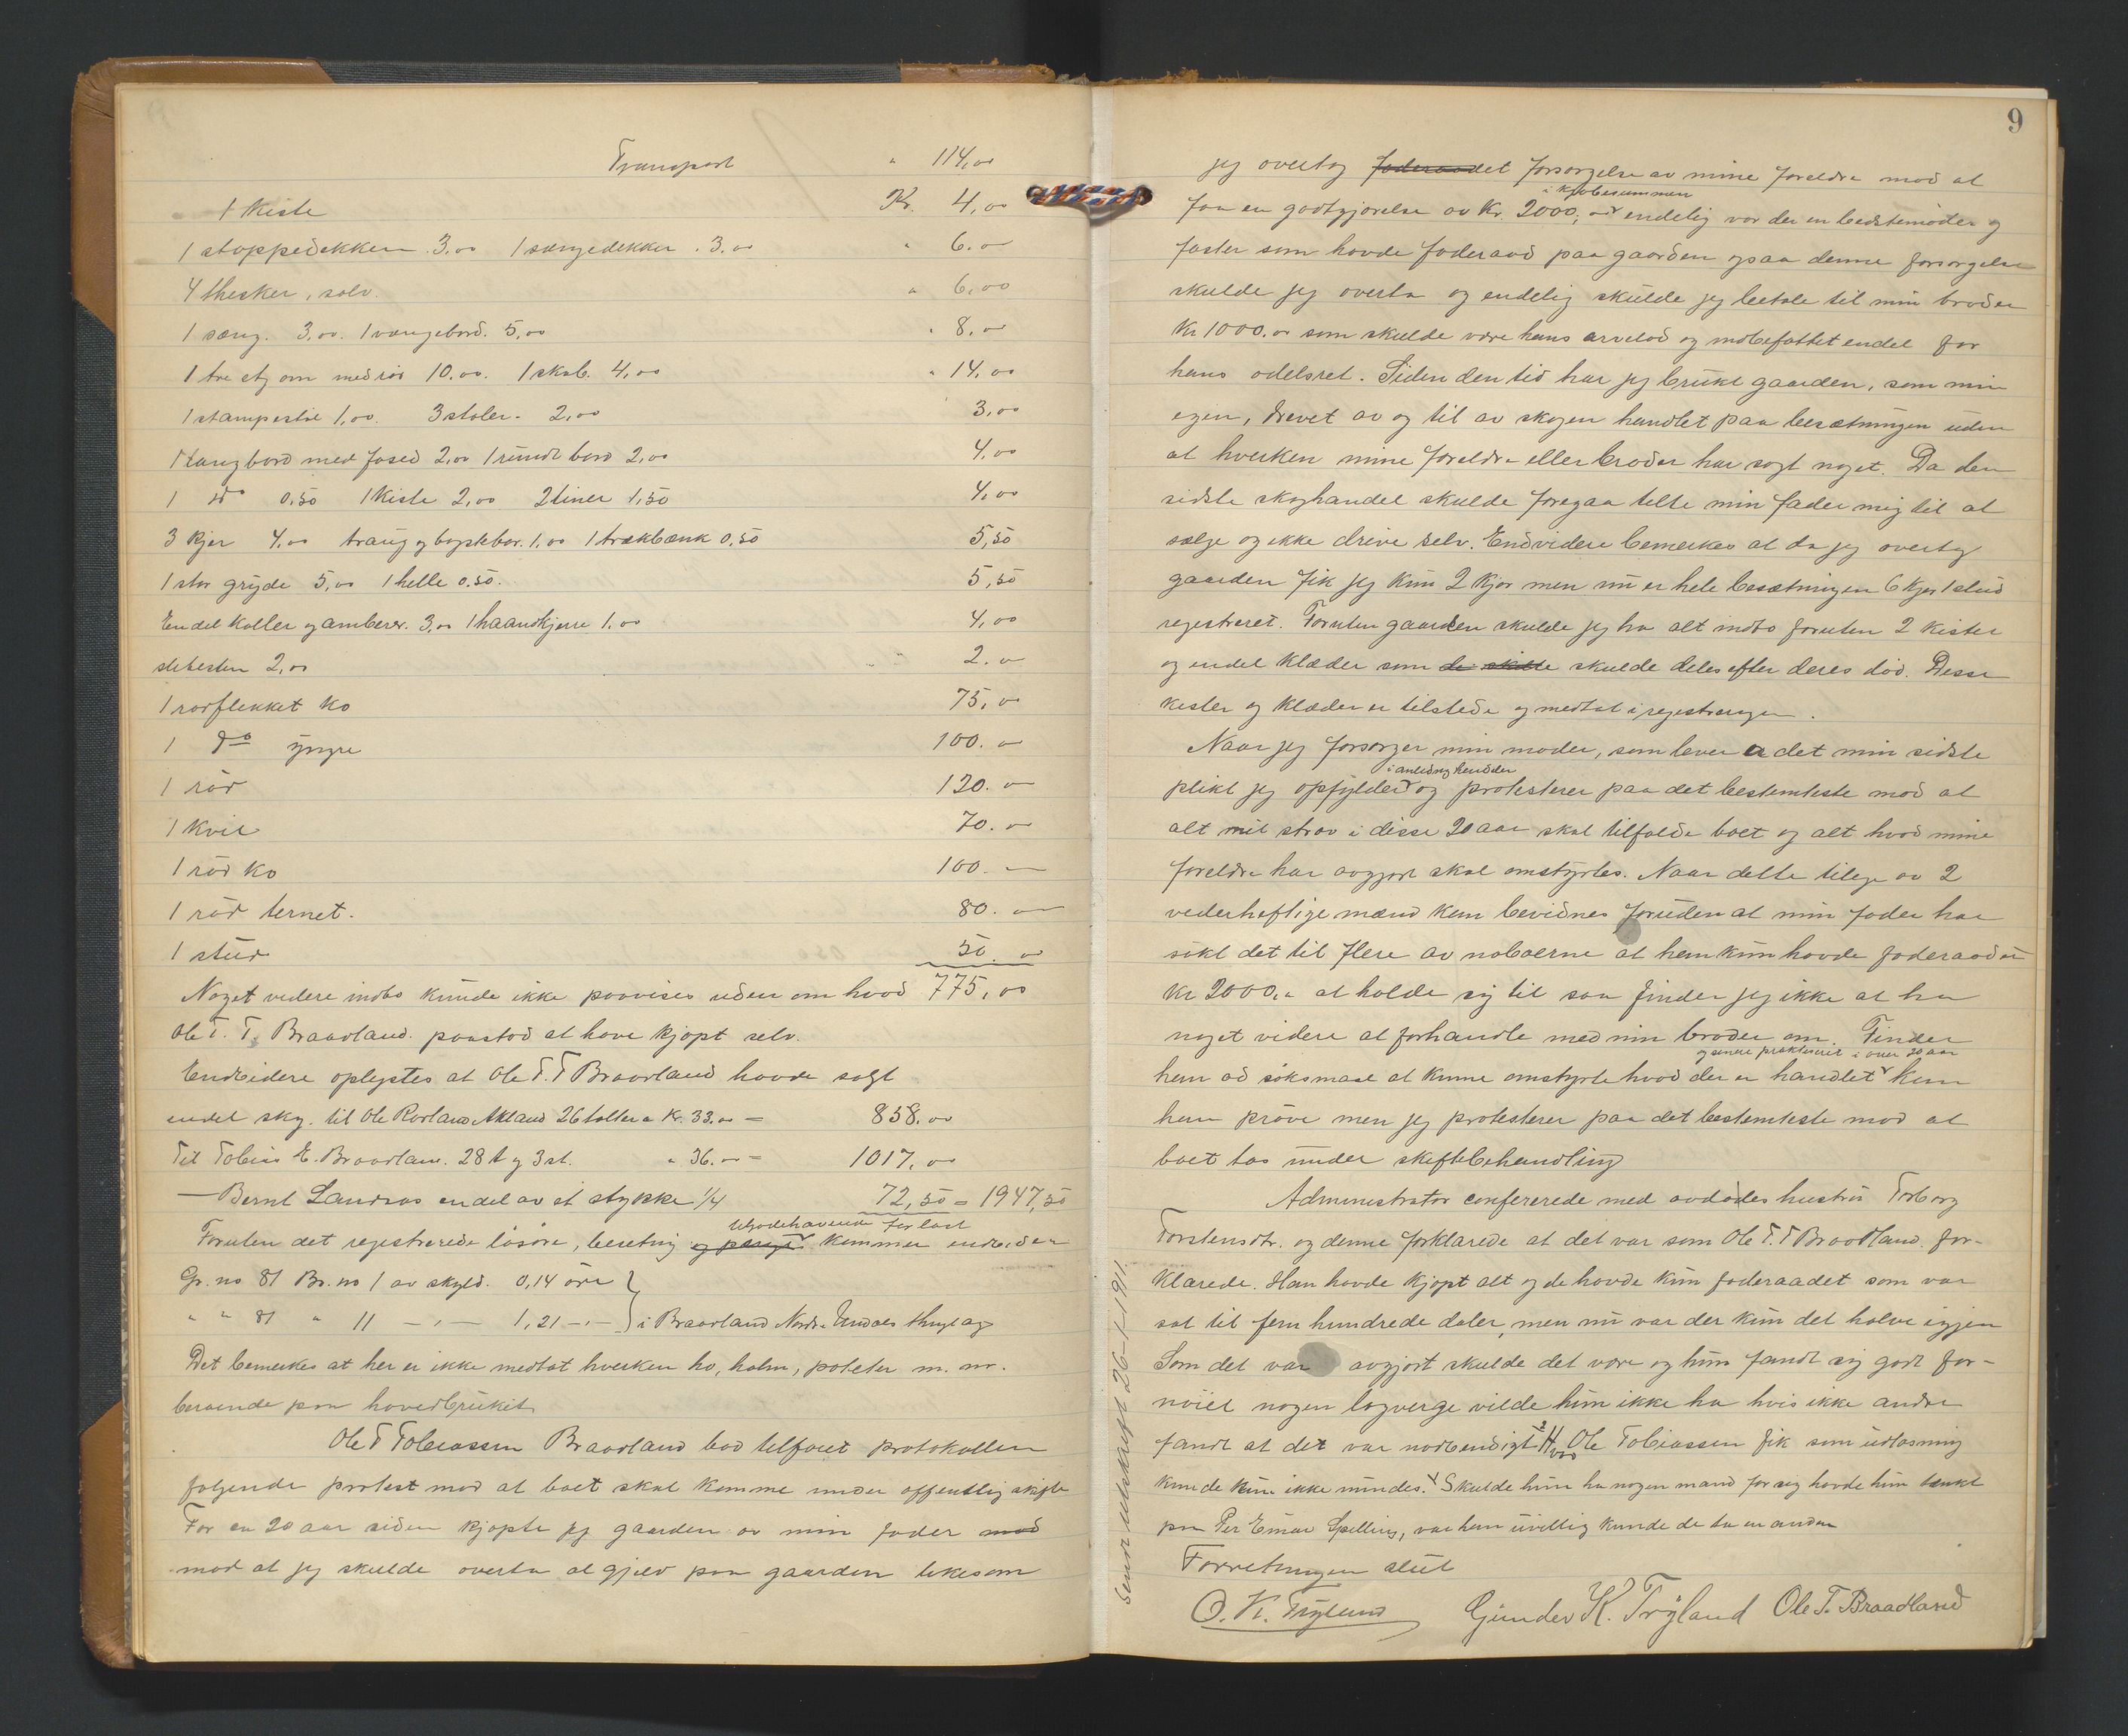 Transport " 114,00
1 Kiste Kr. 4,00
1 stoppedekken 3.00 1 sengedekker . 3.00 " 6.00
4 theskér, sølv. " 6,00
1 seng. 3,00. 1 vængebord. 5,00 " 8.00
1 tre etg om med rør 10.00. 1 skab. 4,00 " 14,00
1 stampestøl 1,00. 3 stoler. 2,00 3,00
1 langbord med fosed 2,00 1 rundt bord 2,00 4,00
1 do 0,50 1 Kiste 2,00 2 tiner 1,50 4,00
3 kjer 4,00 traug og bagstebor. 1,00 1 trækbænk 0,50 5,50
1 stor gryde 5,00 1 helle 0.50. 5,50
En del Koller og amberer. 3,00 1 haandkjerre 1.00 4,00
slibesten 2,00 2.00
1 rødflekket ko 75,00
1 do yngre 100.00
1 rød 120.00
1 Kvie 70.00
1 rød ko 100.
1 rød ternet. 80.00
1 stud 50.00
Noget videre indbo kunde ikke paavises uden om hvad 775,00
Ole T. T. Braadland paastod at have kjøpt selv.
Endvidere oplystes at Ole T. T Braadland havde solgt
endel skog. til Ole Rorland Akland 26 tolter a Kr. 33.00 = 858.00
Til Tobias E. Braadland. 28 t og 3 st. " 36.00 = 1017,00
— Bernt Landaas en del av et stykke 1/4 72,50 = 1947,50
Foruten det registrerede løsøre, besetning og penge utgodehavende for last kommer endvidere
Gr. no 81 Br. no 1 av skyld. 0,14 øre
" " 81 " 11 — " — 1,21 — " — i Braadland Nordre Undals thinglag
Det bemerkes at her er ikke medtat hverken hø, halm, poteter m. m.
beroende paa hovedbruket
Ole T Tobiassen Braadland bad tilført protokollen
følgende protest mod at boet skal komme under offentlig skifte
For ca 20 aar siden kjøpte jeg gaarden av min fader mod
mod at jeg skulde overta al gjeld paa gaarden likesom
9
jeg overtog foderaadet forsørgelse av mine foreldre mod at
faa en godtgjørelse av Kr. 2000,00 i kjøbesummen endelig var der en bedstemoder og
faster som havde foderaad paa gaarden ogsaa denne forsørgelse
skulde jeg overta og endelig skulde jeg betale til min broder
Kr 1000.00 som skulde være hans arvelod og indbefattet endel for
hans odelsret. Siden den tid har jeg brukt gaarden, som min
egen, drevet av og til av skogen handlet paa besætningen uden
at hverken mine foreldre eller broder har sagt noget. Da den
sidste skoghandel skulde foregaa telte min fader mig til at
sælge og ikke drive selv. Endvidere bemerkes at da jeg overtog
gaarden fik jeg kun 2 kjør men nu er hele besætningen 6 kjør 1 stud
registreret. Foruten gaarden skulde jeg ha alt indbo foruten 2 kister
og endel klæder som de skulde skulde deles efter deres død. Disse
kister og klæder er tilstede og medtat i registreringen.
Naar jeg forsørger min moder, som lever er det min sidste
plikt jeg opfylder i anledning handelen og protesterer paa det bestemteste mod at
alt mit strev i disse 20 aar skal tilfalde boet og alt hvad mine
foreldre har avgjort skal omstyrtes. Naar dette tillige av 2
vederheftige mænd kan bevidnes foruden at min fader har
sakt det til flere av naboerne at han kun havde foderaadet
Kr 2000.00 at holde sig til saa finder jeg ikke at ha
noget videre at forhandle med min broder om. Finder
han ad søksmaal at kunne omstyrte hvad der er handlet og senere praktiseret i over 20 aar kan
han prøve men jeg protesterer paa det bestemteste mod at
boet tas under skiftebehandling
Administrator confererede med avdødes hustru Torborg
Torstensdtr. og denne forklarede at det var som Ole T. T Braadland for-
klarede. Han havde kjøpt alt og de havde kun foderaadet som var
sat til fem hundrede daler, men nu var der kun det halve igjen
Som det var avgjort skulde det være og hun fandt sig godt for-
nøiet nogen lagverge vilde hun ikke ha hvis ikke andre
fandt at det var nødvendigt. Hvad Ole Tobiassen fik som utløsning
kunde hun ikke mindes. Skulde hun ha nogen mand for sig havde hun tænkt
paa Per Einar Spilling, var han uvillig kunde de ta en anden
Forretningen slut
O. K. Tryland Gunder K. Tryland Ole T. Braadland
Sendt utskrift 26-1-1911.